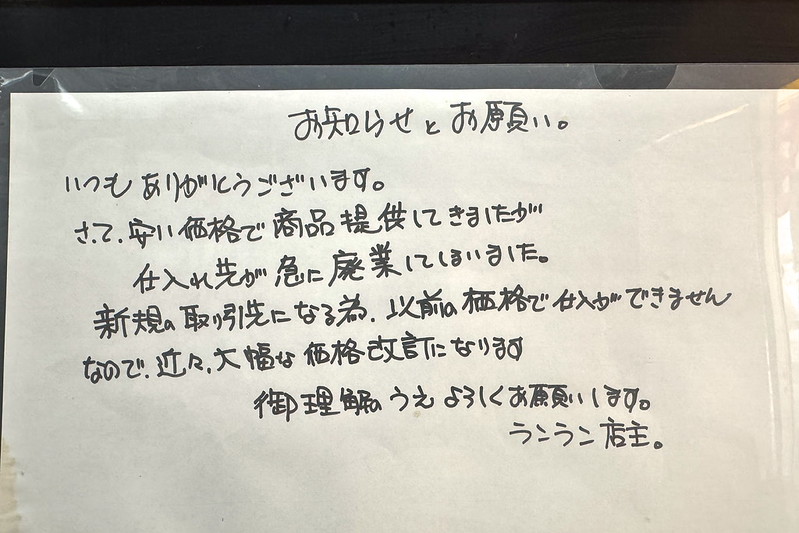 お知らせとお願い。
いつもありがとうございます。
さて、安い価格で商品提供してきましたが
仕入れ先が急に廃業してしまいました。
新規の取り引先になる為、以前の価格で仕入ができません
なので、近々、大幅な価格改訂になります
御理解のうえよろしくお願いします。
ランラン店主。